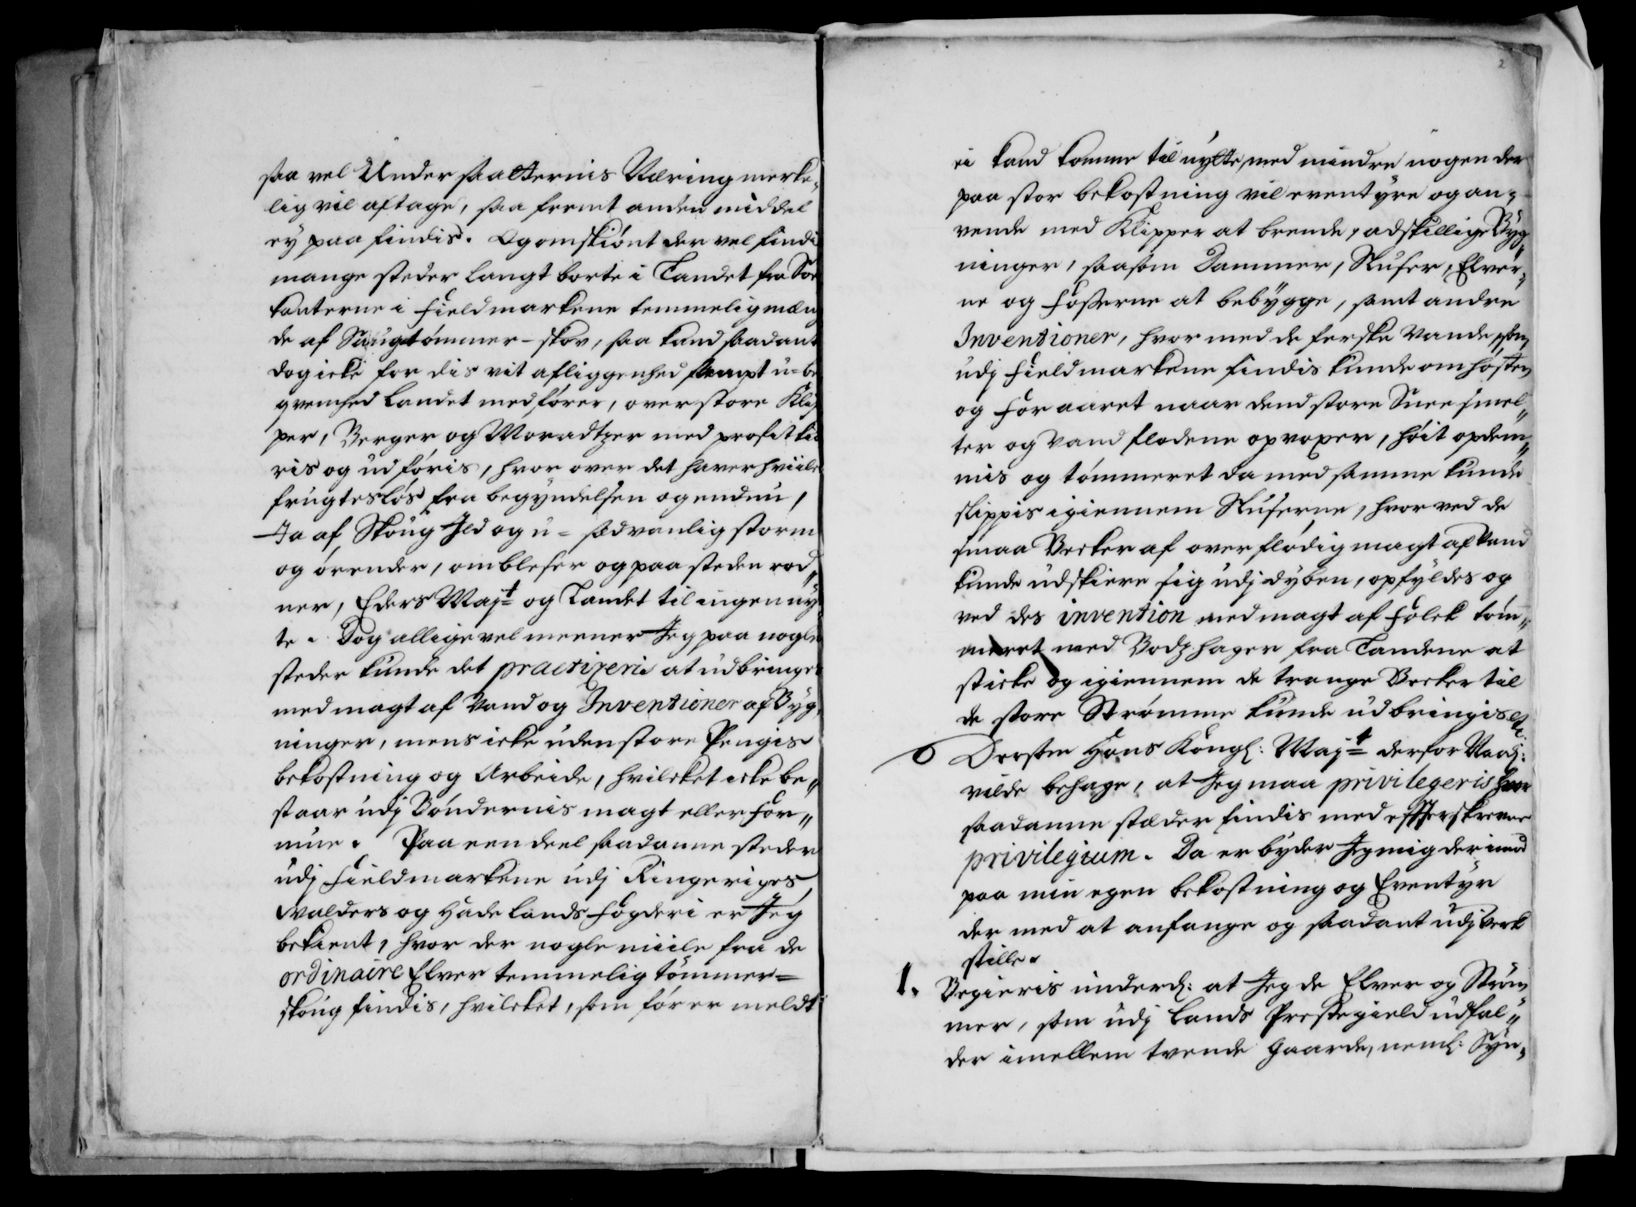 saa vel Undersaatternis Næring merke,
lig vil aftage, saa fremt anden middel
ey paa findis. Og omskiønt der vel findis
mange steder langt borte i Landet fra Søe
kanterne i Fieldmarkene temmelig mæn
de af Saugtømmer-skov, saa kand saadant
dog icke for dis vit afliggenhed sampt u-be
qvemhed Landet medfører, over store Klip
per, Berger og Moradtzer med profit kiø
ris og udføris, hvor over det haver hviilet
frugtesløs fra begyndelsen og endnu,
Ja af Skoug Ild og u-sædvanlig storm
og ørender, omblefer og paa steden rød„
ner, Eders Majt og Landet til ingen nyt
te. Dog alligevel meener Jeg paa nogle
steder kunde det practizeris at udbringes
med magt af Vand og Inventioner af Byg
ninger, mens icke uden store Pengis
bekostning og Arbeide, hvilcket icke be„
staar udj Bøndernis magt eller for„
mue. Paa een deel saadanne steder
udj Fieldmarkene udj Ringeriges
Walders og Hadelands Fogderi er Jeg
bekient, hvor der nogle miile fra de
ordinaire Elver temmelig tømmer=
skoug findis, hvilcket, som før er meldt
2
ei kand komme til nytte, med mindre nogen der
paa stor bekostning vil eventyre og an„
vende med Klipper at brende, adskillige Byg
ninger, saasom Dammer, Rufer, Elver„
ne og Fosserne at bebygge, samt andre
Inventioner, hvor med de ferske Vande, som
udj Fieldmarkene findis kunde om høsten
og Foraaret naar dend store Snee smel„
ter og Vand flodene opvoxer, høit opdem„
mis og tømmeret da med samme kunde
slippis igiennem Ruserne, hvor ved de
smaa Becker af overflødig magt af Vand
kunde udskiere sig udj dyben, opfyldes og
ved des invention med magt af Folck tøm„
meret med Bodzhager fra Landene at
sticke og igiennem de trange Becker til
de store Strømme kunde udbringis etc.
Dersom Hans Kongl: Majt derfor Naadj:
vilde behage, at Jeg maa privilegeris hvor
saadanne stæder findis med efterskrevne
privilegium. Da erbyder Jeg mig derimod
paa min egen bekostning og Eventyr
der med at anfange og saadant udj Verk
stille.
1. Begieris underd: at Jeg de Elver og Strøm
mer, som udj Lands Prestegield udfal„
der imellem tvende Gaarde, neml: Syn„